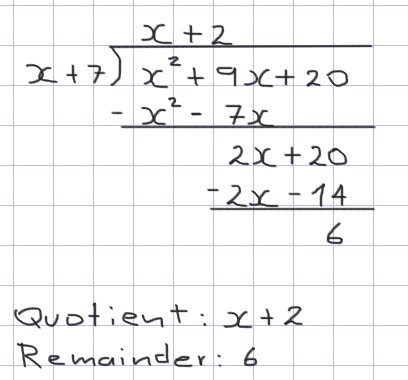 x + 2
x + 7 ) x² + 9x + 20
- x² - 7x
2x + 20
-2x - 14
6
Quotient: x + 2
Remainder: 6